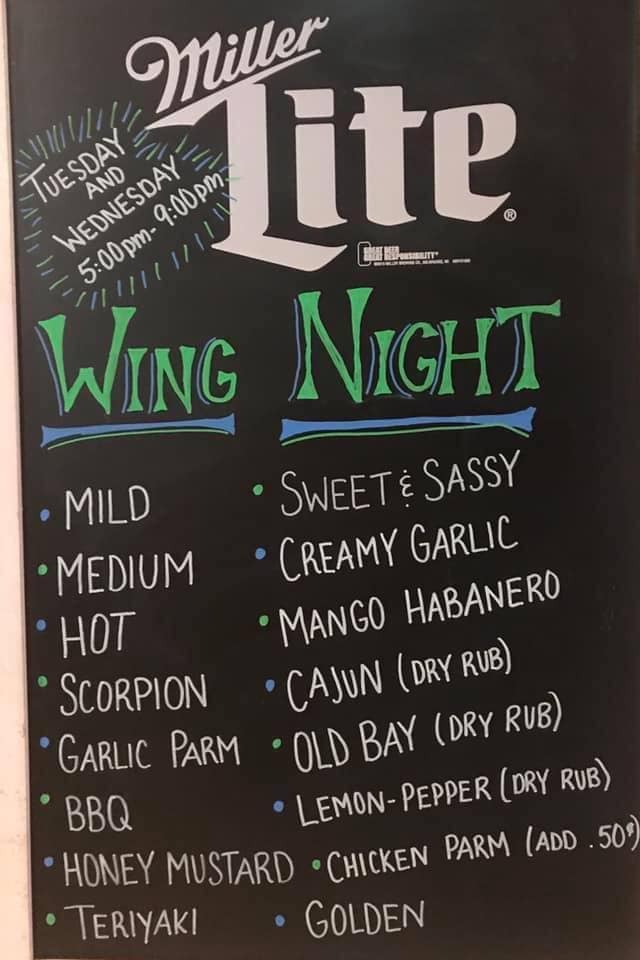 Miller
Lite®
TUESDAY
AND
WEDNESDAY
5:00pm- 9:00pm
GREAT BEER
GREAT RESPONSIBILITY
WING NIGHT
• MILD
• MEDIUM
• HOT
• SCORPION
• GARLIC PARM
• BBQ
• HONEY MUSTARD
• TERIYAKI
• SWEET & SASSY
• CREAMY GARLIC
• MANGO HABANERO
• CAJUN (DRY RUB)
• OLD BAY (DRY RUB)
• LEMON-PEPPER (DRY RUB)
• CHICKEN PARM (ADD .50¢)
• GOLDEN